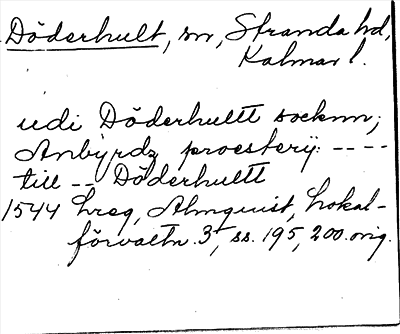 Döderhult, sn, Stranda hd,
Kalmar l.
udi Döderhultt socknn;
Anbÿrdz proesterÿ: ----
till -- Döderhultt
1544 hreg, Almquist, Lokal-
förvaltn. 3, ss. 195, 200. orig.